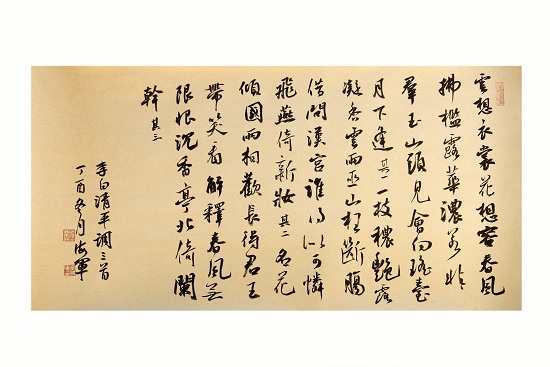 雲想衣裳花想容春風
拂檻露華濃若非
羣玉山頭見會向瑤臺
月下逢其一一枝穠艷露
凝香雲雨巫山枉斷腸
借問漢宮誰得似可憐
飛燕倚新妝其二名花
傾國兩相歡長得君王
帶笑看解釋春風無
限恨沉香亭北倚闌
幹其三
李白清平調三首
丁酉冬月海軍